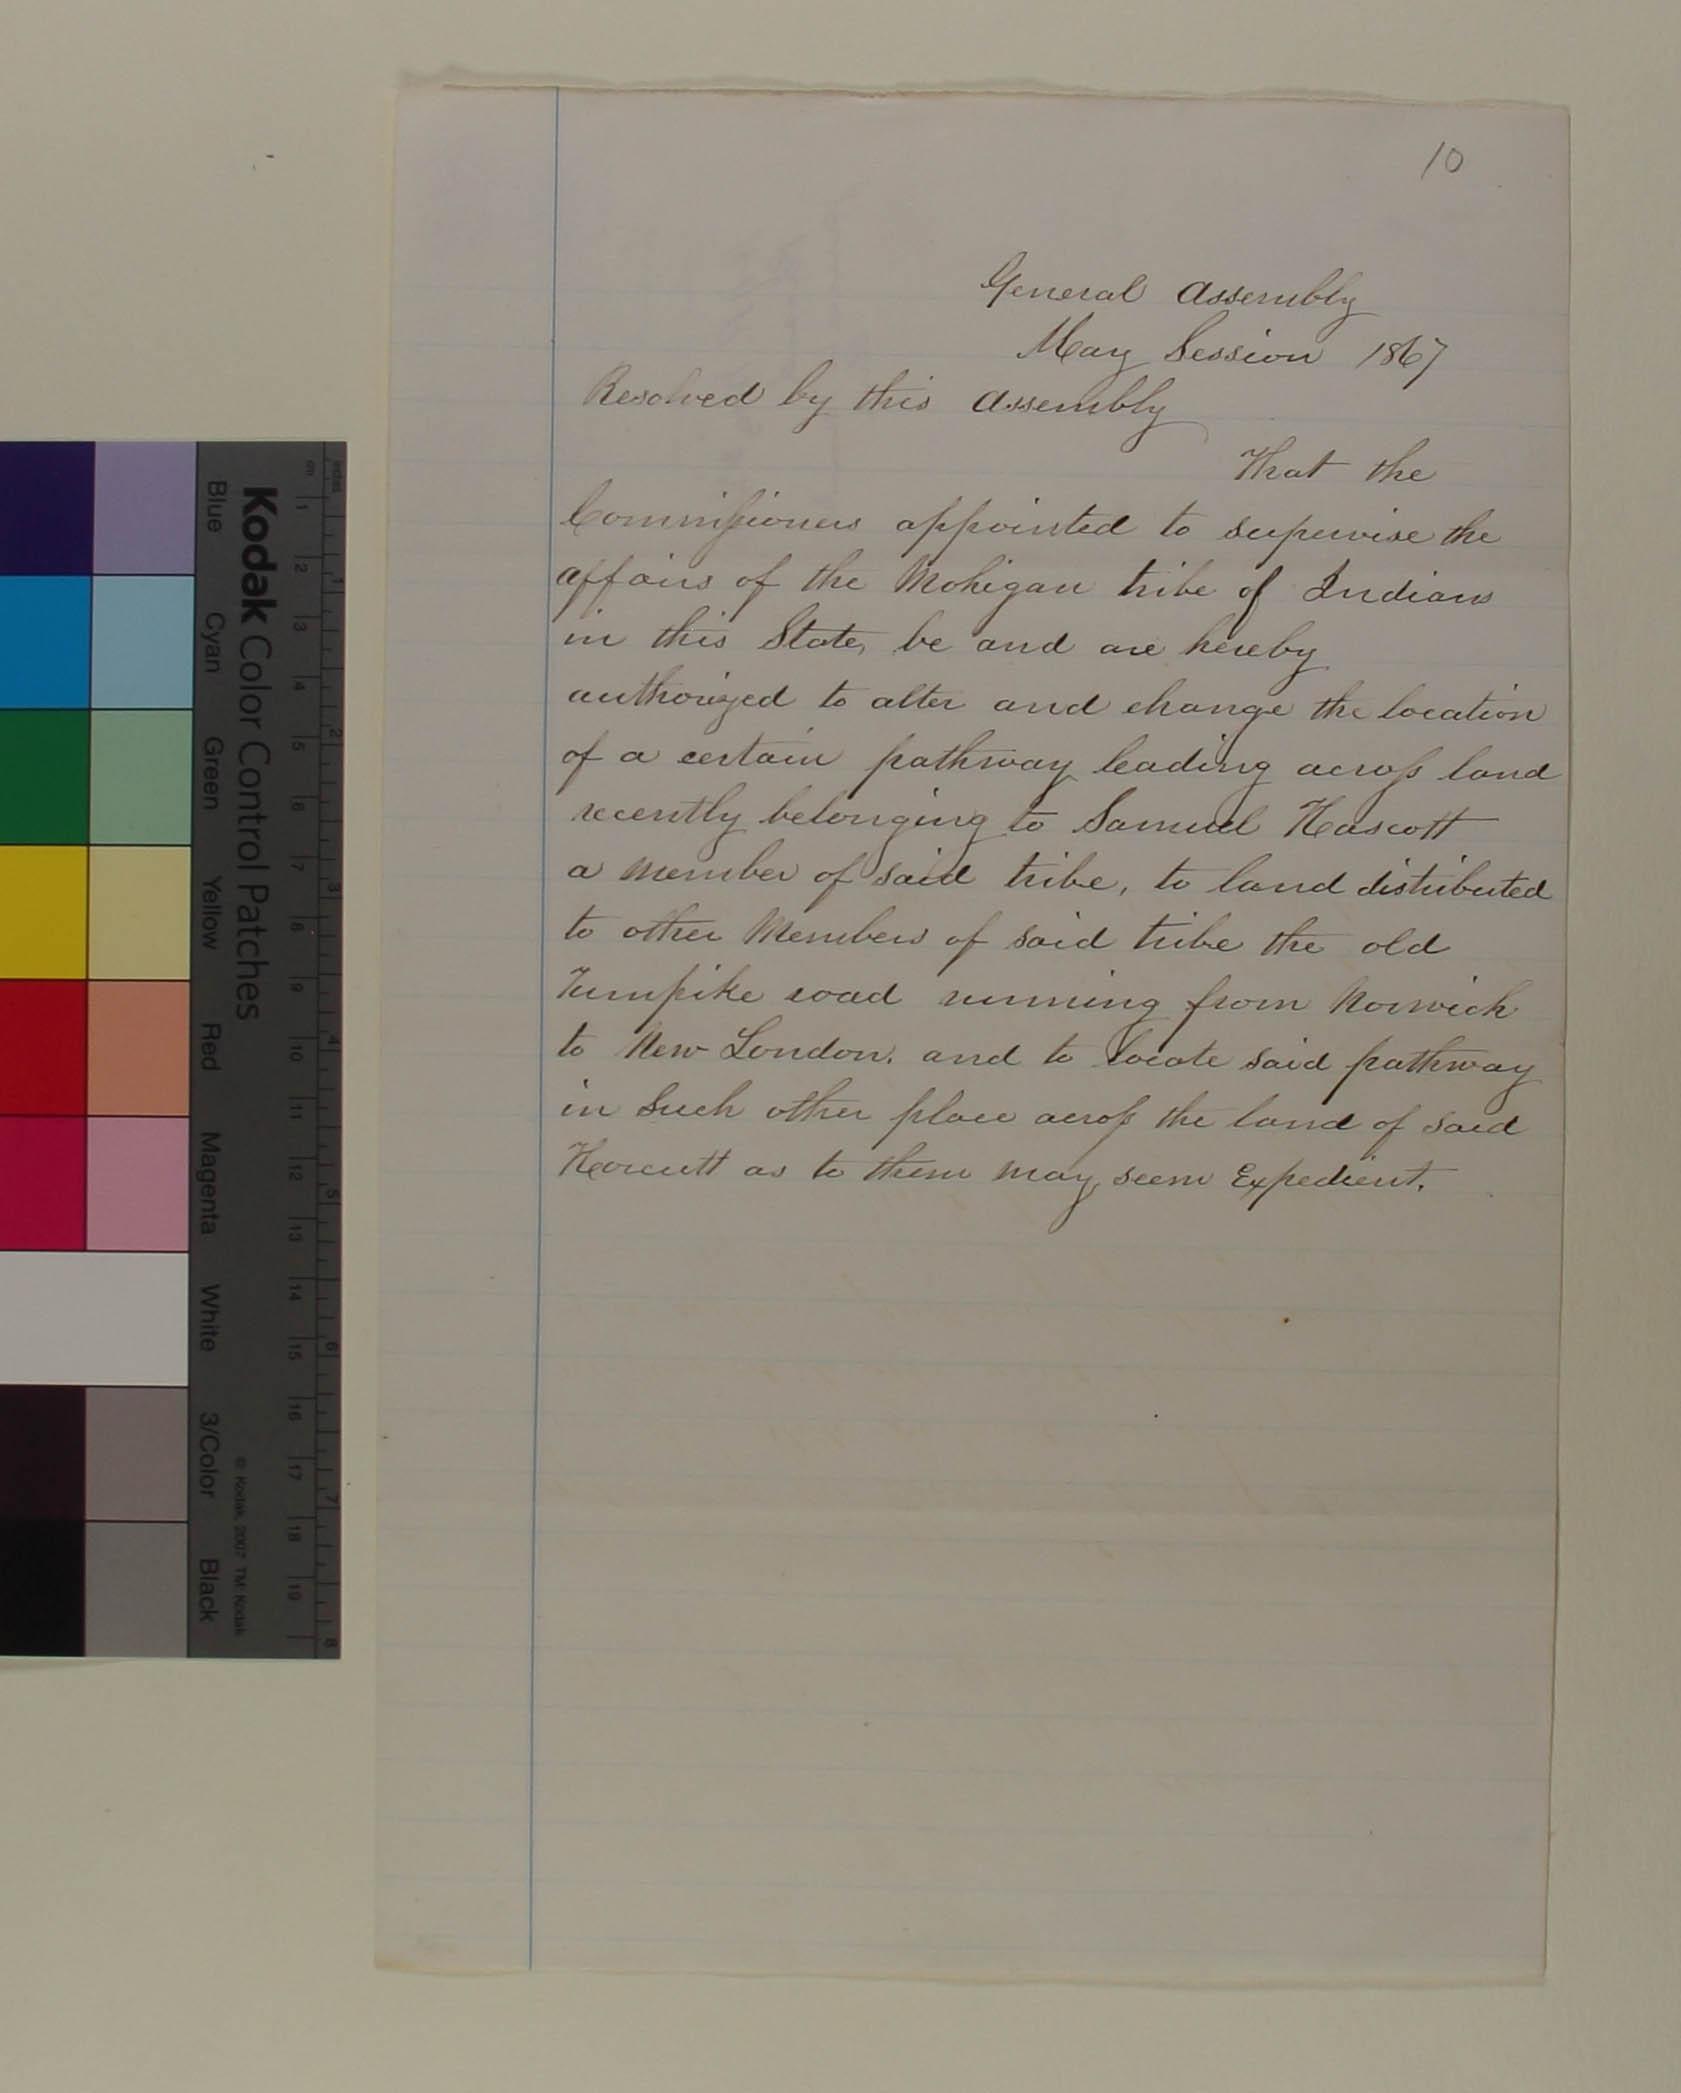 10
General Assembly
May Session 1867
Resolved by this Assembly
That the
Commissioners appointed to supervise the
affairs of the Mohigan tribe of Indians
in this State, be and are hereby
authorized to alter and change the location
of a certain pathway leading across land
recently belonging to Samuel Hascott
a Member of said tribe, to land distributed
to other Members of said tribe the old
Turnpike road running from Norwich
to New London. and to locate said pathway
in such other place across the land of said
Harcutt as to them may seem Expedient.
Kodak Color Control Patches
Blue Cyan Green Yellow Red Magenta White 3/Color Black
© Kodak, 2007 TM: Kodak
cm 1 2 3 4 5 6 7 8 9 10 11 12 13 14 15 16 17 18 19
inches 1 2 3 4 5 6 7 8